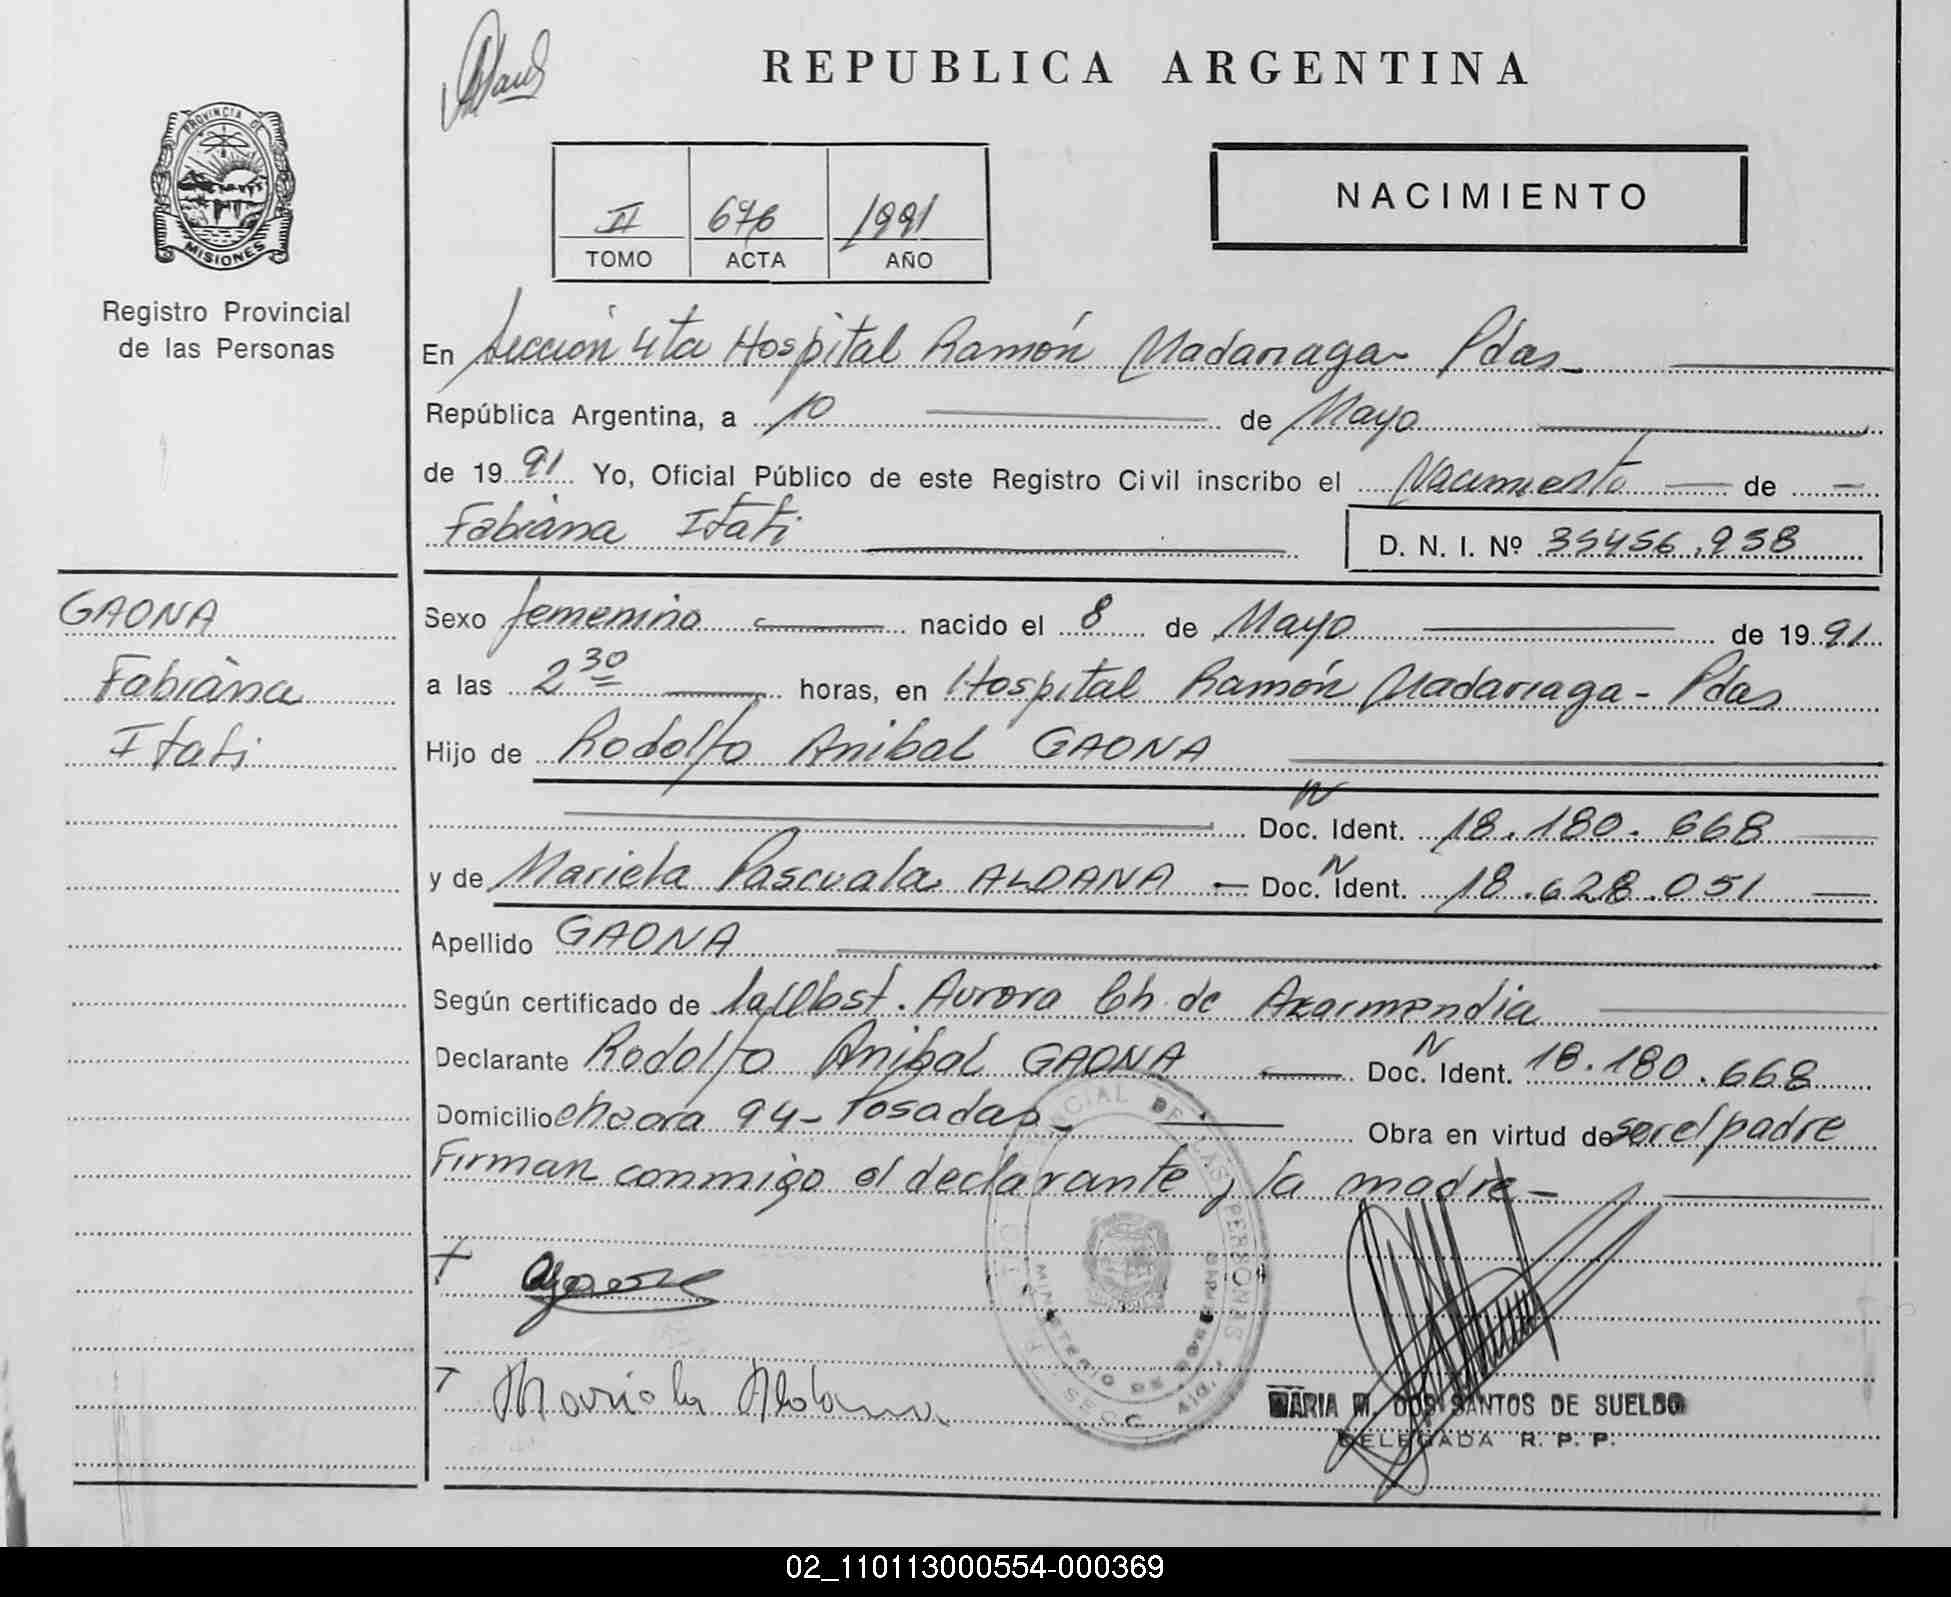 REPUBLICA ARGENTINA
PROVINCIA DE
MISIONES
Registro Provincial
de las Personas
II 676 1991
TOMO ACTA AÑO
NACIMIENTO
En Sección 4ta Hospital Ramón Madariaga - Pdas_
República Argentina, a 10 de Mayo
de 1991 Yo, Oficial Público de este Registro Civil inscribo el Nacimiento de
Fabiana Itati
D. N. I. Nº 35456.938
GAONA
Fabiana
Itati
Sexo femenino nacido el 8 de Mayo de 1991
a las 2 30 horas, en Hospital Ramón Madariaga - Pdas
Hijo de Rodolfo Anibal GAONA
Doc. Ident. N 18.180.668
y de Mariela Pascuala ALDANA Doc. Ident. N 18.628.051
Apellido GAONA
Según certificado de la Obst. Aurora Ch. de Azarmendia
Declarante Rodolfo Anibal GAONA Doc. Ident. N 18.180.668
Domicilio chacra 94 - Posadas_ Obra en virtud de ser el padre
Firman conmigo el declarante y la madre_
Mariela Aldana
MARIA M. DOS SANTOS DE SUELDO
DELEGADA R. P. P.
02_110113000554-000369